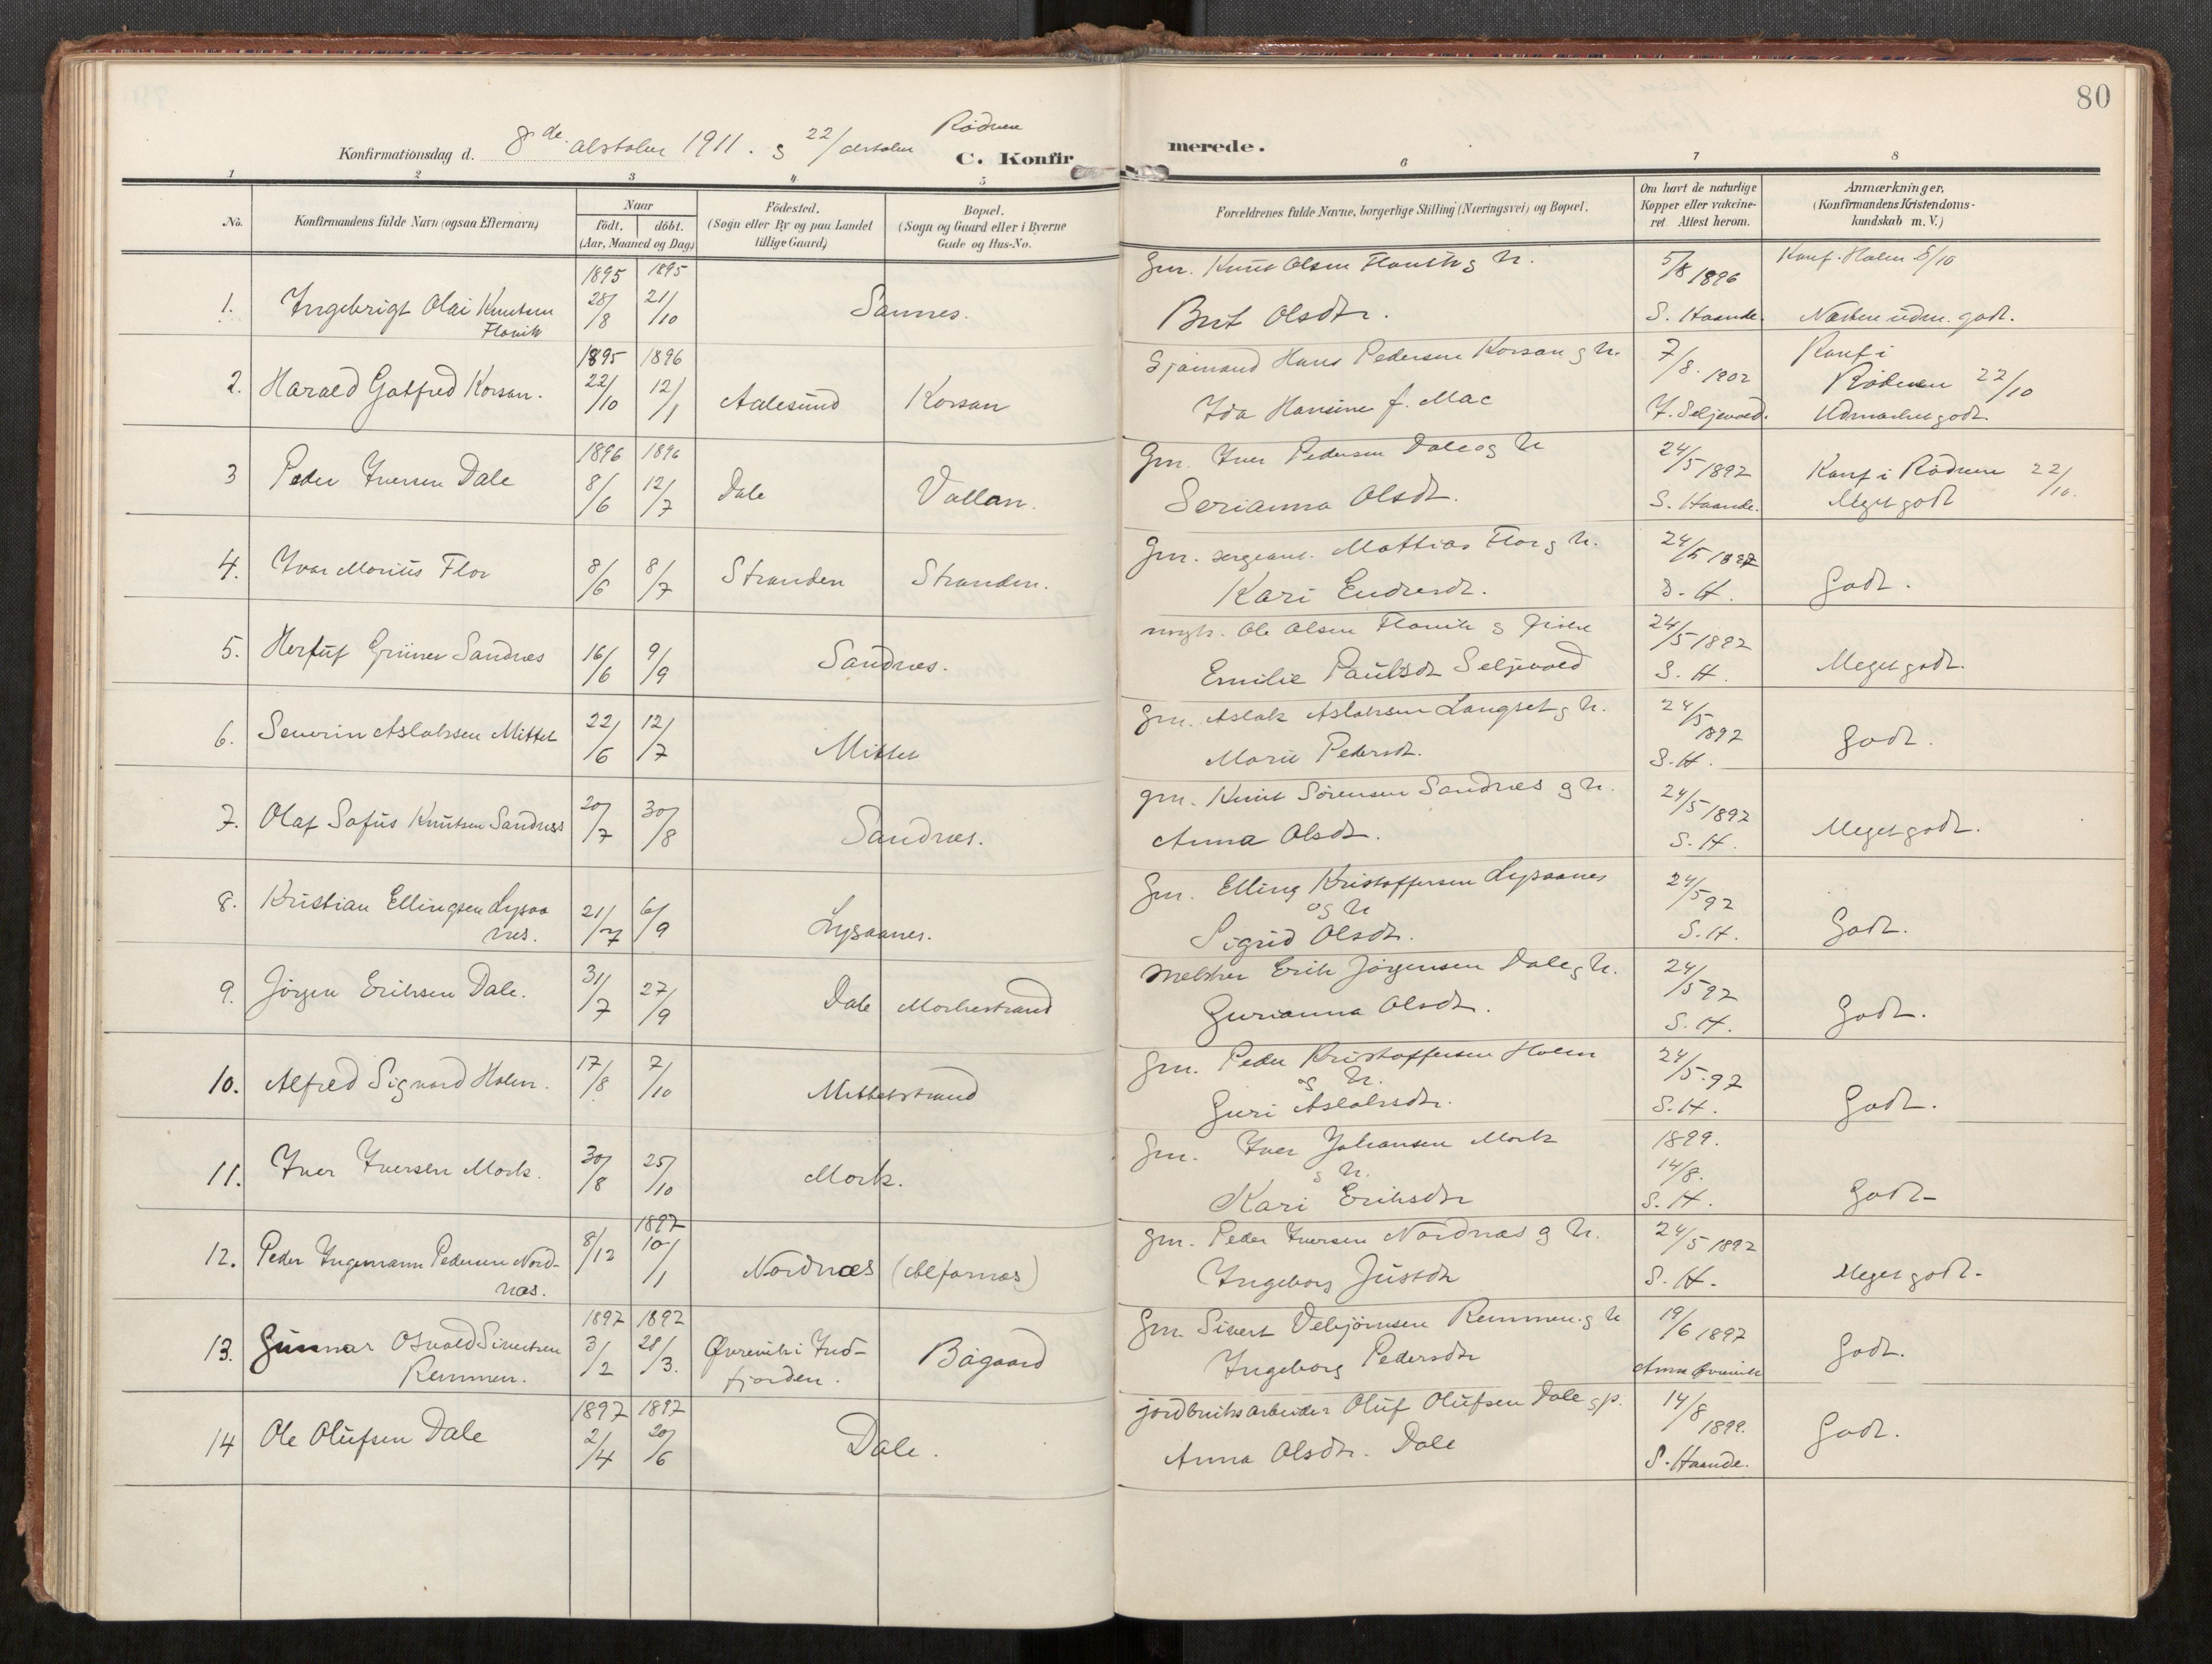 80
Rødven
Konfirmationsdag d. 8de oktober 1911. & 22/ oktober
C. Konfirmerede.
1 2 3 4 5 6 7 8
No.
Konfirmandens fulde Navn (ogsaa Efternavn)
Naar
født. døbt.
(Aar, Maaned og Dag)
Fødested.
(Sogn eller By og paa Landet
tillige Gaard)
Bopæl.
(Sogn og Gaard eller i Byerne
Gade og Hus-No.
Forældrenes fulde Navne, borgerlige Stilling (Næringsvei) og Bopæl.
Om havt de naturlige
Kopper eller vakcine-
ret Attest herom.
Anmærkninger,
(Konfirmandens Kristendoms-
kundskab m. V.)
1. Ingebrigt Olai Knutsen
Flovik
1895 28/8
1895 21/10
Sannes.
Gm. Knut Olsen Flovik & h.
Brit Olsdtr.
5/8 1896
S. Haande.
Konf. Holm 8/10
Næsten udm. godt.
2. Harald Gotfred Korsan.
1895 22/10
1896 12/1
Aalesund
Korsan
Sjømand Hans Pedersen Korsan & h.
Ida Hansine f. Mac
7/8. 1902
I. Seljevold.
Konf i
Rødven 22/10
Udmærket godt
3 Peder Iversen Dale
1896 8/6
1896 12/7
Dale
Vollan.
Gm. Iver Pedersen Dale og h
Serianna Olsdt.
24/5 1897
S. Haande.
Konf i Rødven 22/10.
Meget godt
4. Ivar Marius Flor
8/6
8/7
Stranden
Stranden.
Gm. sergeant. Mattias Flor & h.
Kari Endresdt.
24/5 1897
S. H.
Godt.
5. Herluf Grüner Sandnes
16/6
9/9
Sandnes.
ungk. Ole Olsen Flovik & pike
Emilie Paulsdt Seljevold
24/5 1897
S. H.
Meget godt.
6. Severin Aslaksen Mittet
22/6
12/7
Mittet
Gm. Aslak Aslaksen Langset & h.
Marie Pedersdt.
24/5 1897
S. H.
Godt.
7. Olaf Sofus Knutsen Sandnes
20/7
30/8
Sandnes.
gm. Knut Sørensen Sandnes & h.
Anna Olsdt.
24/5 1897
S. H.
Meget godt.
8. Kristian Ellingsen Lysaa
nes.
21/7
6/9
Lysaanes.
Gm. Elling Kristoffersen Lysaanes
og h
Sigrid Olsdt.
24/5 97
S. H.
Godt.
9. Jørgen Eriksen Dale.
31/7
27/9
Dale Morkestrand
Erik Jørgensen Dale & h.
Gurianna Olsdt.
24/5 97
S. H.
Godt.
10. Alfred Sigvard Holm.
17/8
7/10
Mittetstrand
Gm. Peder Kristoffersen Holm
og h.
Guri Aslaksdtr.
24/5. 97
S. H.
Godt.
11. Iver Iversen Mork.
30/8
25/10
Mork.
Gm. Iver Johansen Mork
& h.
Kari Eriksdtr
1899.
14/8.
S. H.
Godt-
12. Peder Ingemann Pedersen Nord-
næs.
8/12
1897 10/1
Nordnæs (Alfarnæs)
gm. Peder Iversen Nordnæs & h.
Ingeborg Justdtr
24/5 1897
S. H.
Meget godt.
13. Gunnar Osvald Sivertsen
Remmen.
1897 3/2
1897 28/3.
Øvrevik i Ind-
fjorden.
Bøgaard
Gm. Sivert Vebjørnsen Remmen & h
Ingeborg Pedersdtr
19/6 1897
Anne Øvrevik
Godt.
14 Ole Olufsen Dale
1897 2/4
1897 20/6
Dale.
jordbruksarbeider Oluf Olufsen Dale & p.
Anna Olsdtr. Dale
14/8 1899.
S. Haande.
Godt.